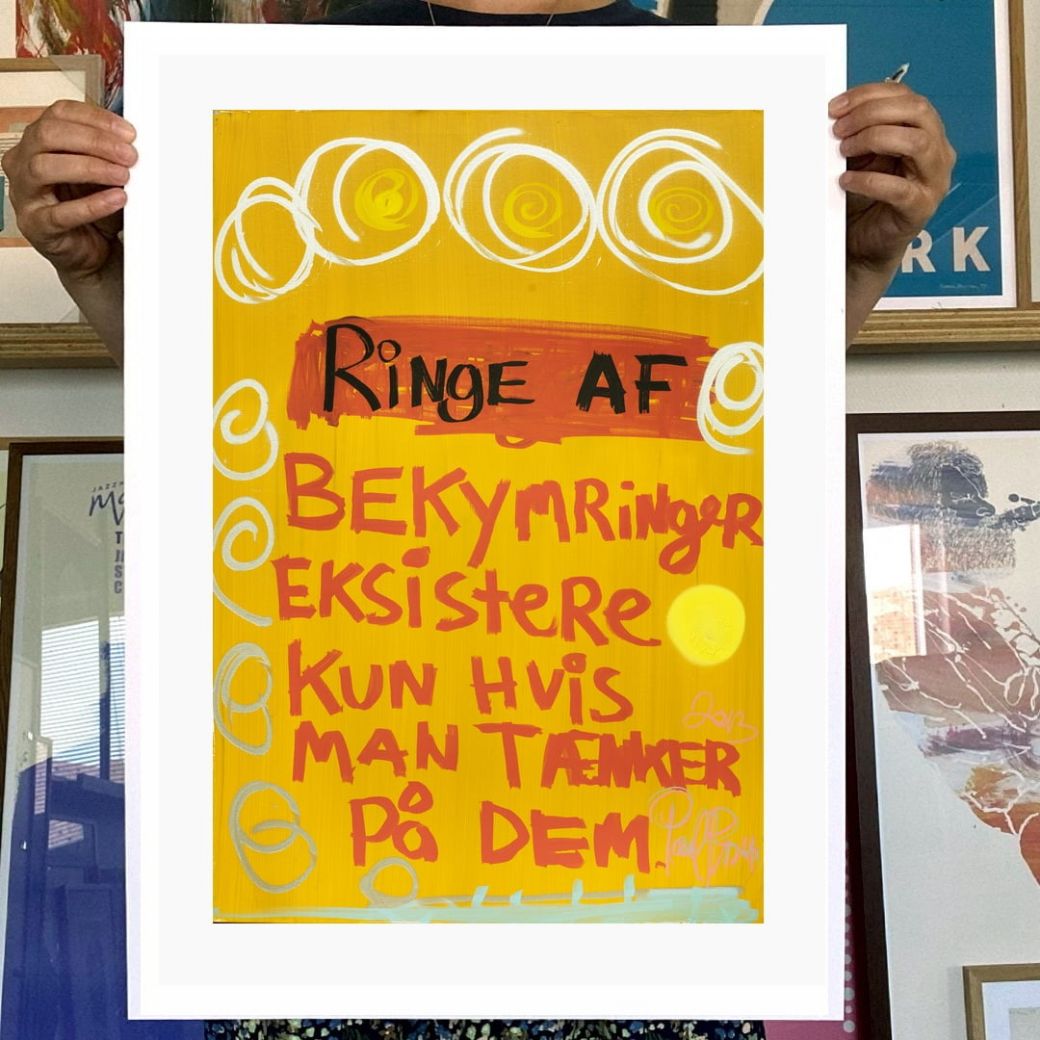 RK
RiNgE AF
BEKymRiNgeR
EKSiSteRe
KUN HViS
MAN TÆNKER
På DEM.
2013
JAZZ